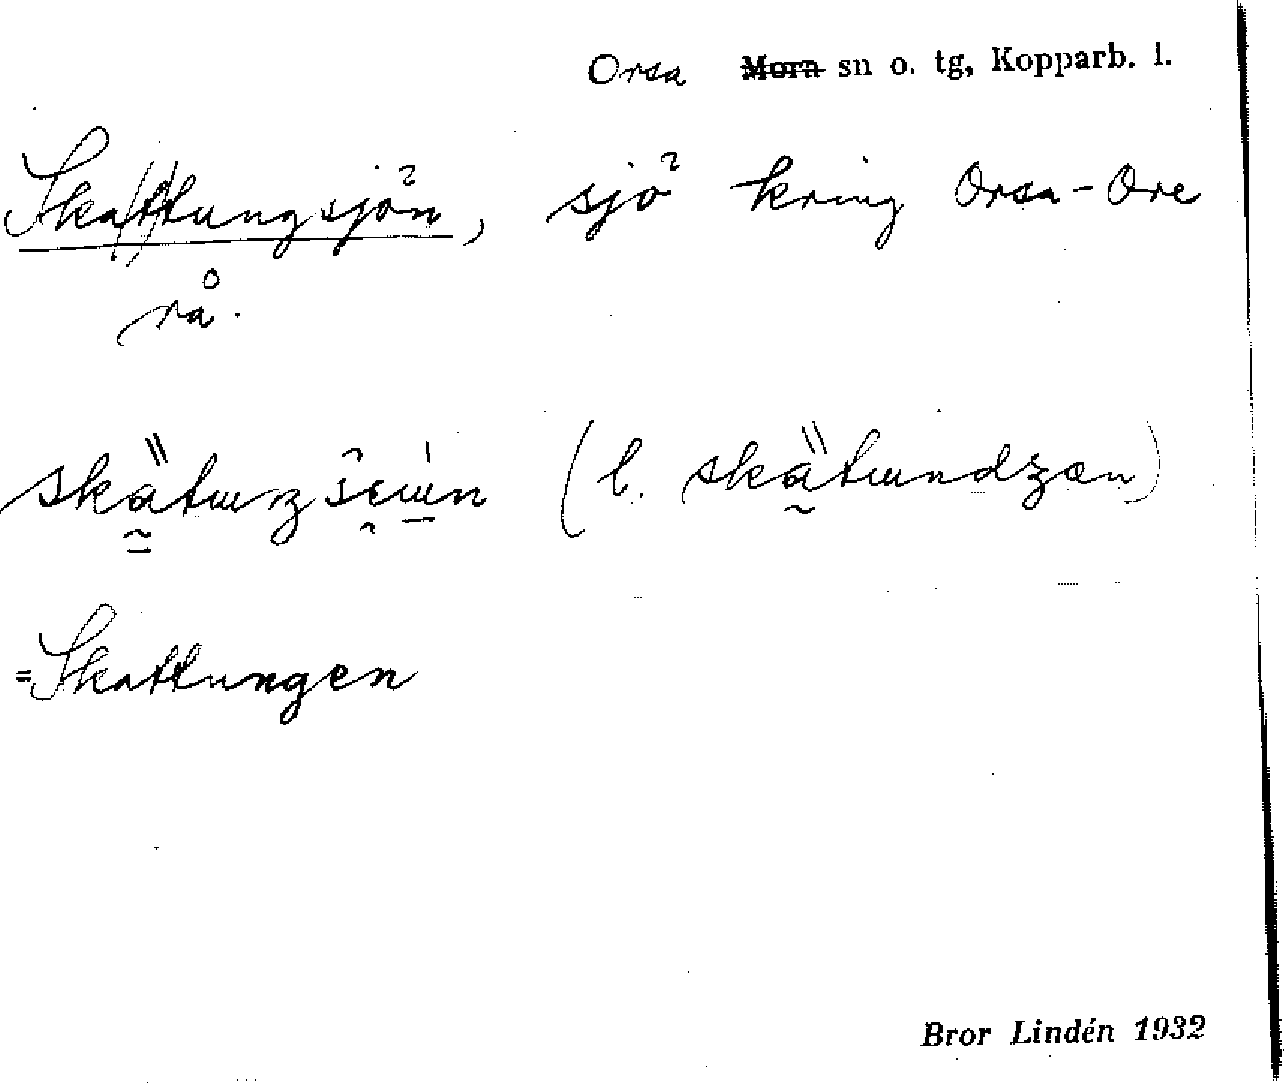 Orsa Mora sn o. tg, Kopparb. l.
Ska(t)tungsjön, sjö kring Orsa-Ore
rå.
(l.
=Skattungen
Bror Lindén 1932